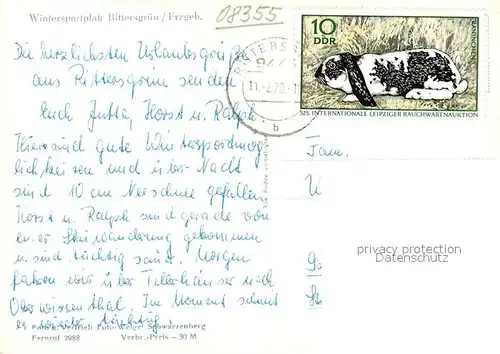 Wintersportplatz Rittersgrün / Erzgeb.
08355
Die herzlichsten Urlaubsgrüße
aus Rittersgrün senden
Euch Jutta, Horst u. Ralph
Hier sind gute Wintersportmög-
lichkeiten und über Nacht
sind 10 cm Neuschnee gefallen
Horst u. Ralph sind gerade von
einer Skiwanderung gekommen
u. sind tüchtig satt. Morgen
fahren wir über Tellerhäuser nach
Oberwiesenthal. Im Moment schneit
es wieder tüchtig.
Foto-Weigel Schwarzenberg
Fernruf 2988 Verbr.-Preis —.30 M
RITTERS
11.-2.70.-1
b
10
DDR
KANINCHEN
525. INTERNATIONALE LEIPZIGER RAUCHWARENAUKTION
Fam.
privacy protection
Datenschutz